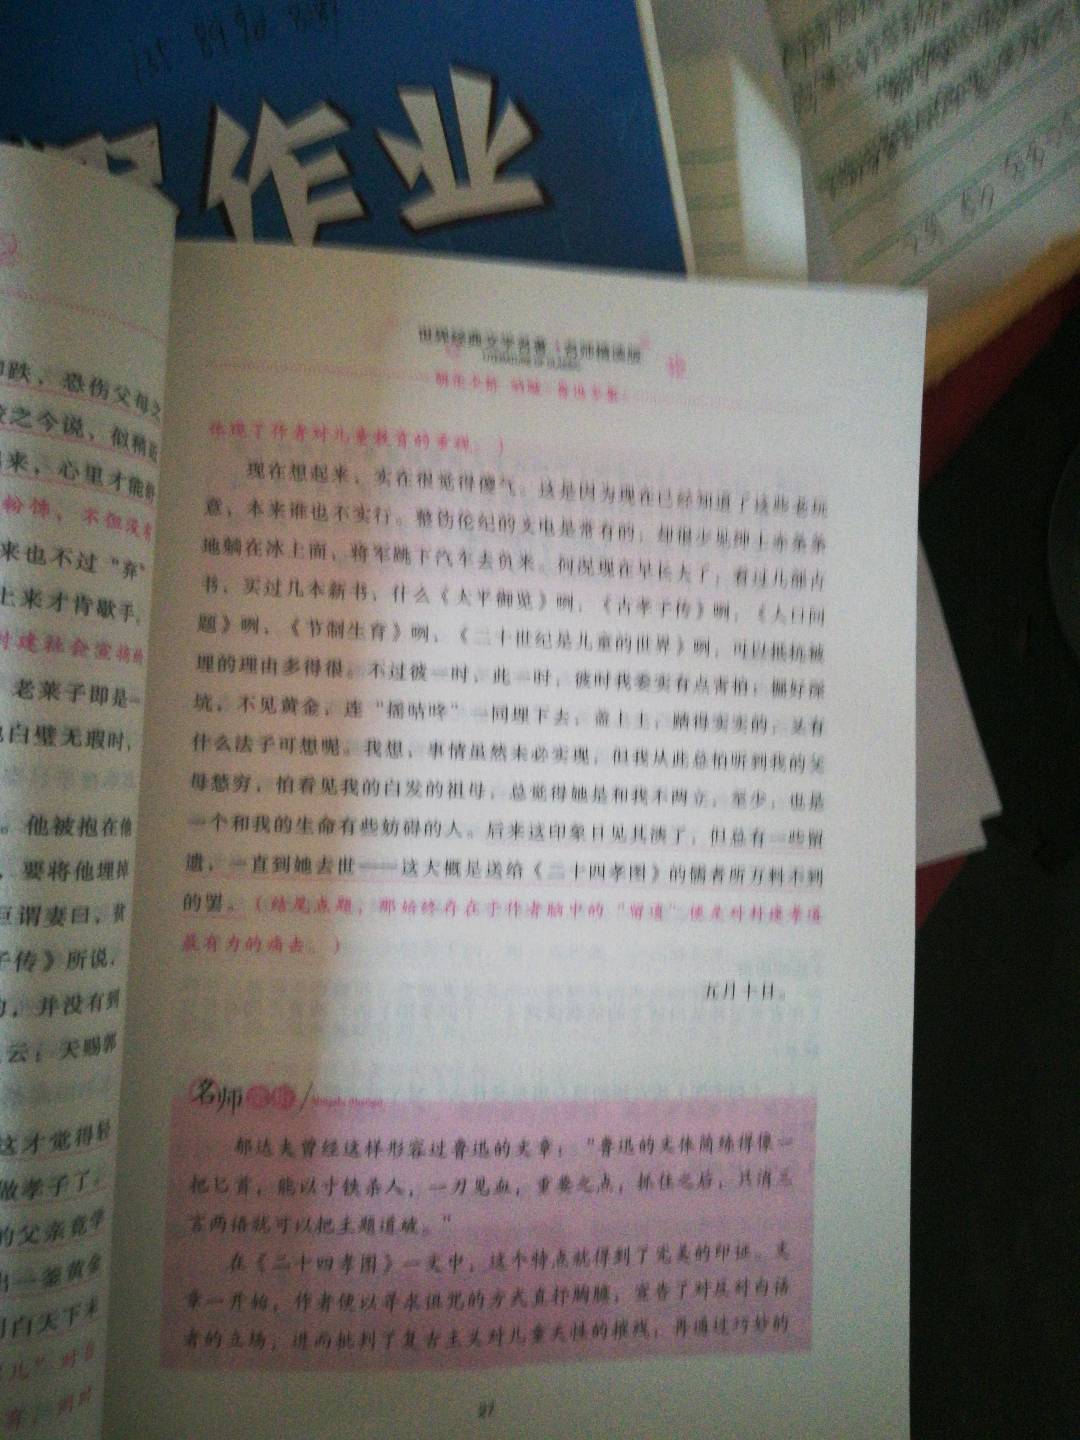 作业
仰跌，恐伤父母之
较之今说，似稍近
起来，心里才能舒
粉饰，不但没有
来也不过“弃”
上来才肯歇手，
封建社会宣扬的
老莱子即是一
白璧无瑕时，
。他被抱在他
，要将他埋掉
巨谓妻曰，贫
子传》所说，
的，并没有到
云：天赐郭
这才觉得轻
做孝子了。
的父亲竟学
出一釜黄金
明白天下未
世界经典文学名著 名师精读版
体现了作者对儿童教育的重视。）
现在想起来，实在很觉得傻气。这是因为现在已经知道了这些老玩
意，本来谁也不实行。整饬伦纪的文电是常有的，却很少见绅士赤条条
地躺在冰上面，将军跳下汽车去负米。何况现在早长大了，看过几部古
书，买过几本新书，什么《太平御览》咧，《古孝子传》咧，《人口问
题》咧，《节制生育》咧，《二十世纪是儿童的世界》咧，可以抵抗被
埋的理由多得很。不过彼一时，此一时，彼时我委实有点害怕：掘好深
坑，不见黄金，连“摇咕咚”一同埋下去，盖上土，踏得实实的，又有
什么法子可想呢。我想，事情虽然未必实现，但我从此总怕听到我的父
母愁穷，怕看见我的白发的祖母，总觉得她是和我不两立，至少，也是
一个和我的生命有些妨碍的人。后来这印象日见其淡了，但总有一些留
遗，一直到她去世——这大概是送给《二十四孝图》的儒者所万料不到
的罢。（结尾点题，那始终存在于作者脑中的“留遗”便是对封建孝道
最有力的痛击。）
五月十日。
名师
郁达夫曾经这样形容过鲁迅的文章：“鲁迅的文体简练得像一
把匕首，能以寸铁杀人，一刃见血，重要之点，抓住之后，只消三
言两语就可以把主题道破。”
在《二十四孝图》一文中，这个特点就得到了完美的印证。文
章一开始，作者便以寻求诅咒的方式直抒胸臆，宣告了对反对白话
者的立场，进而批判了复古主义对儿童天性的摧残；再通过巧妙的